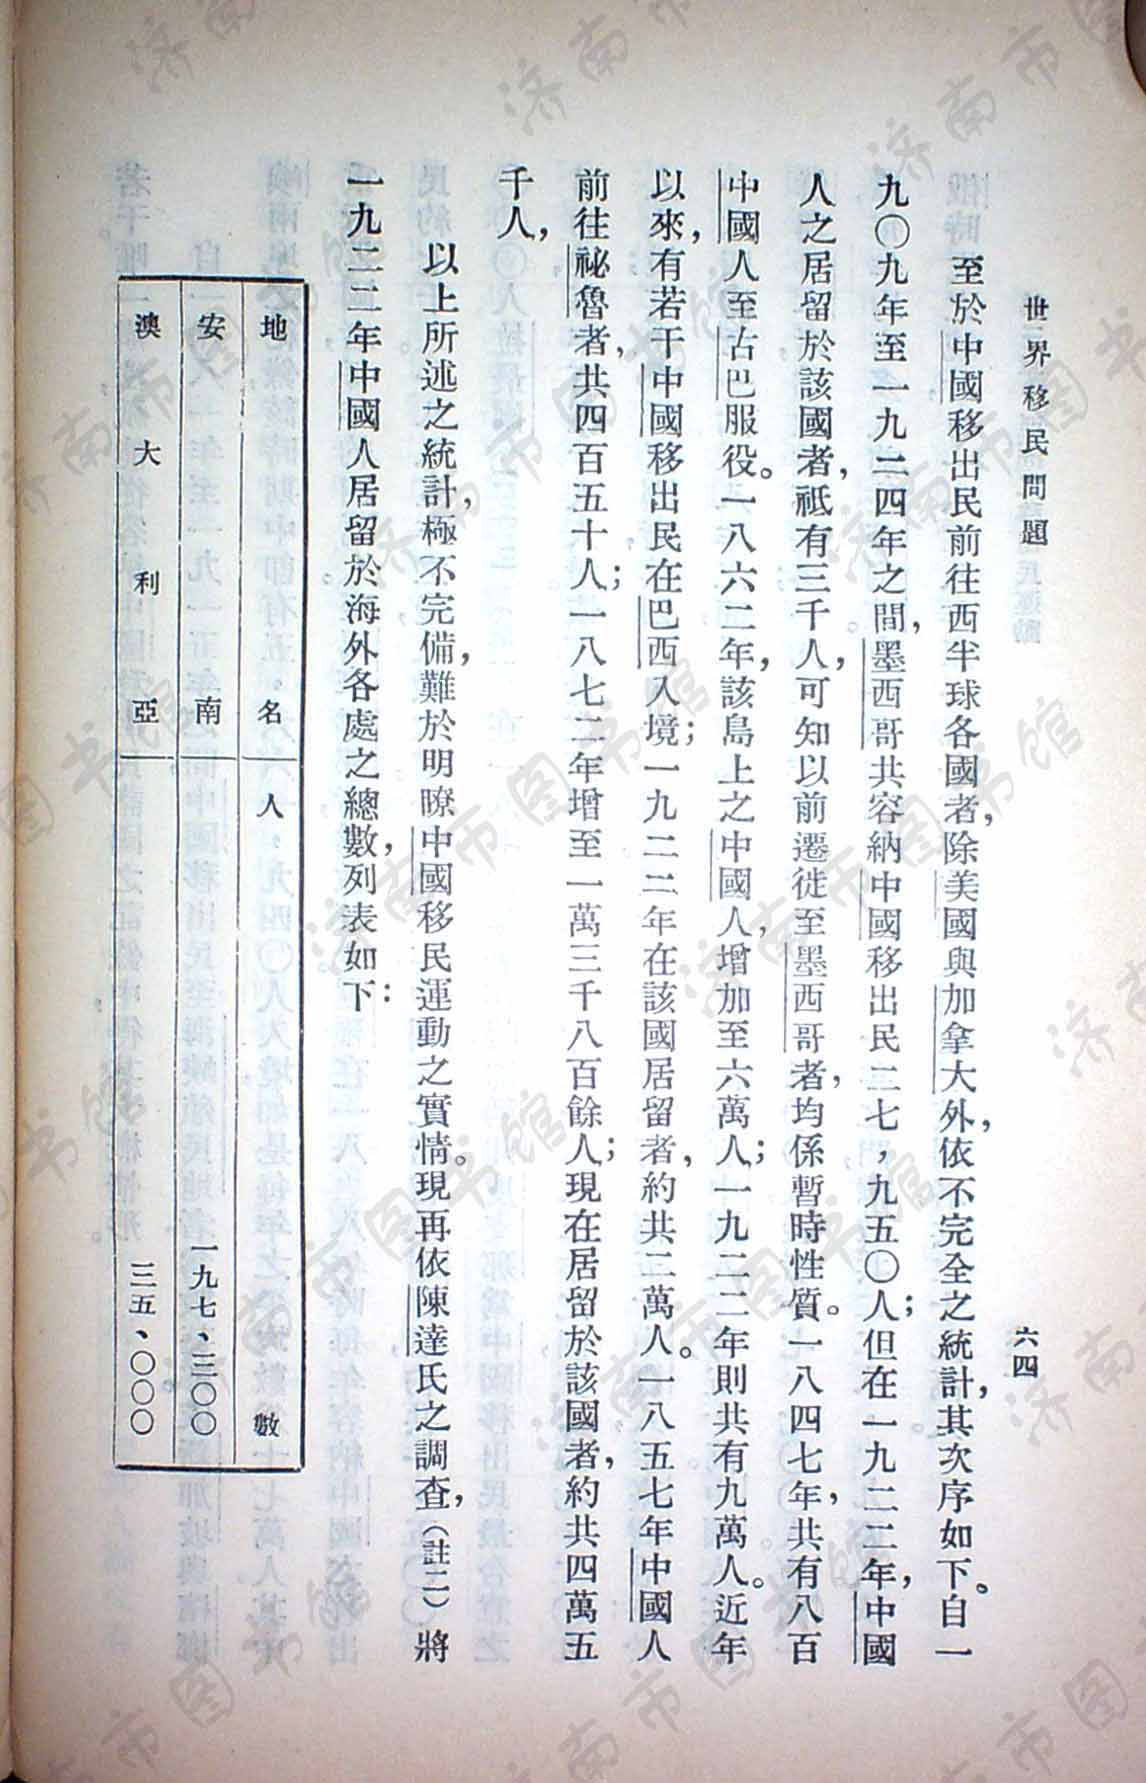 世界移民問題
六四
至於中國移出民前往西半球各國者，除美國與加拿大外，依不完全之統計，其次序如下。自一
九〇九年至一九二四年之間，墨西哥共容納中國移出民二七，九五〇人；但在一九二二年，中國
人之居留於該國者，祗有三千人，可知以前遷徙至墨西哥者，均係暫時性質。一八四七年，共有八百
中國人至古巴服役。一八六二年，該島上之中國人，增加至六萬人；一九二二年則共有九萬人。近年
以來，有若干中國移出民在巴西入境；一九二二年在該國居留者，約共二萬人。一八五七年中國人
前往祕魯者，共四百五十人；一八七二年增至一萬三千八百餘人；現在居留於該國者，約共四萬五
千人，
以上所述之統計，極不完備，難於明瞭中國移民運動之實情。現再依陳達氏之調查，（註二）將
一九二二年中國人居留於海外各處之總數，列表如下：
地名 人數
安南 一九七、三〇〇
澳大利亞 三五、〇〇〇
济南市图书馆